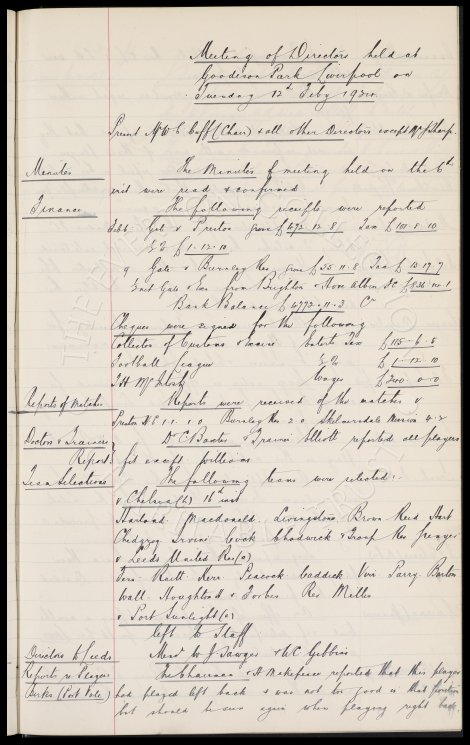 Meeting of Directors held at
Goodison Park Liverpool on
Tuesday 12th Feby 1924.
Present Mr W C Cuff (Chair) & all other Directors except Mr J Sharp.
Minutes
The Minutes of meeting held on the 6th
inst were read & confirmed
Finance
The following receipts were reported
Gate v Preston gross £ 472 12. 8 Tax £ 101 8 10
£ 1. 12. 10
9 Gate v Burnley Res gross £ 55 11. 8 Tax £ 13 17 7
Gate from Brighton & Hove Albion FC
Bank Balance £ 4772. 11. 3 Cr
Cheques were signed for the following
Collector of Customs & Excise Ents Tax £ 115 - 6 - 8
Football League £ 1 - 12. 10
Wages £ 300 - 0 - 0
Reports of Matches
Reports were received of the matches v
Preston N E 1. 1. Burnley Res 2 0 Skelmersdale Mission 4. 2
Doctors & Trainers
Report
Dr C Baxter & Trainer Elliott reported all players
fit except
Team Selections
The following teams were selected:-
v Chelsea (h) 16th inst
Harland Macdonald Livingstone Brown Reid Hart
Chedgzoy Irvine Cock Chadwick & Troup Res
v Leeds United Res (a)
Fern Raitt Kerr Peacock Caddick Virr Parry
Wall & Forbes Res Miller
v Port Sunlight (a)
left to Staff
Directors to Leeds
Messrs W J Sawyer & W C Gibbins
Reports re Players
The Chairman & H Makepeace reported that this player
(Port Vale)
had played left back & was not so good in that position
but should be seen again when playing right back.
THE EVERTON